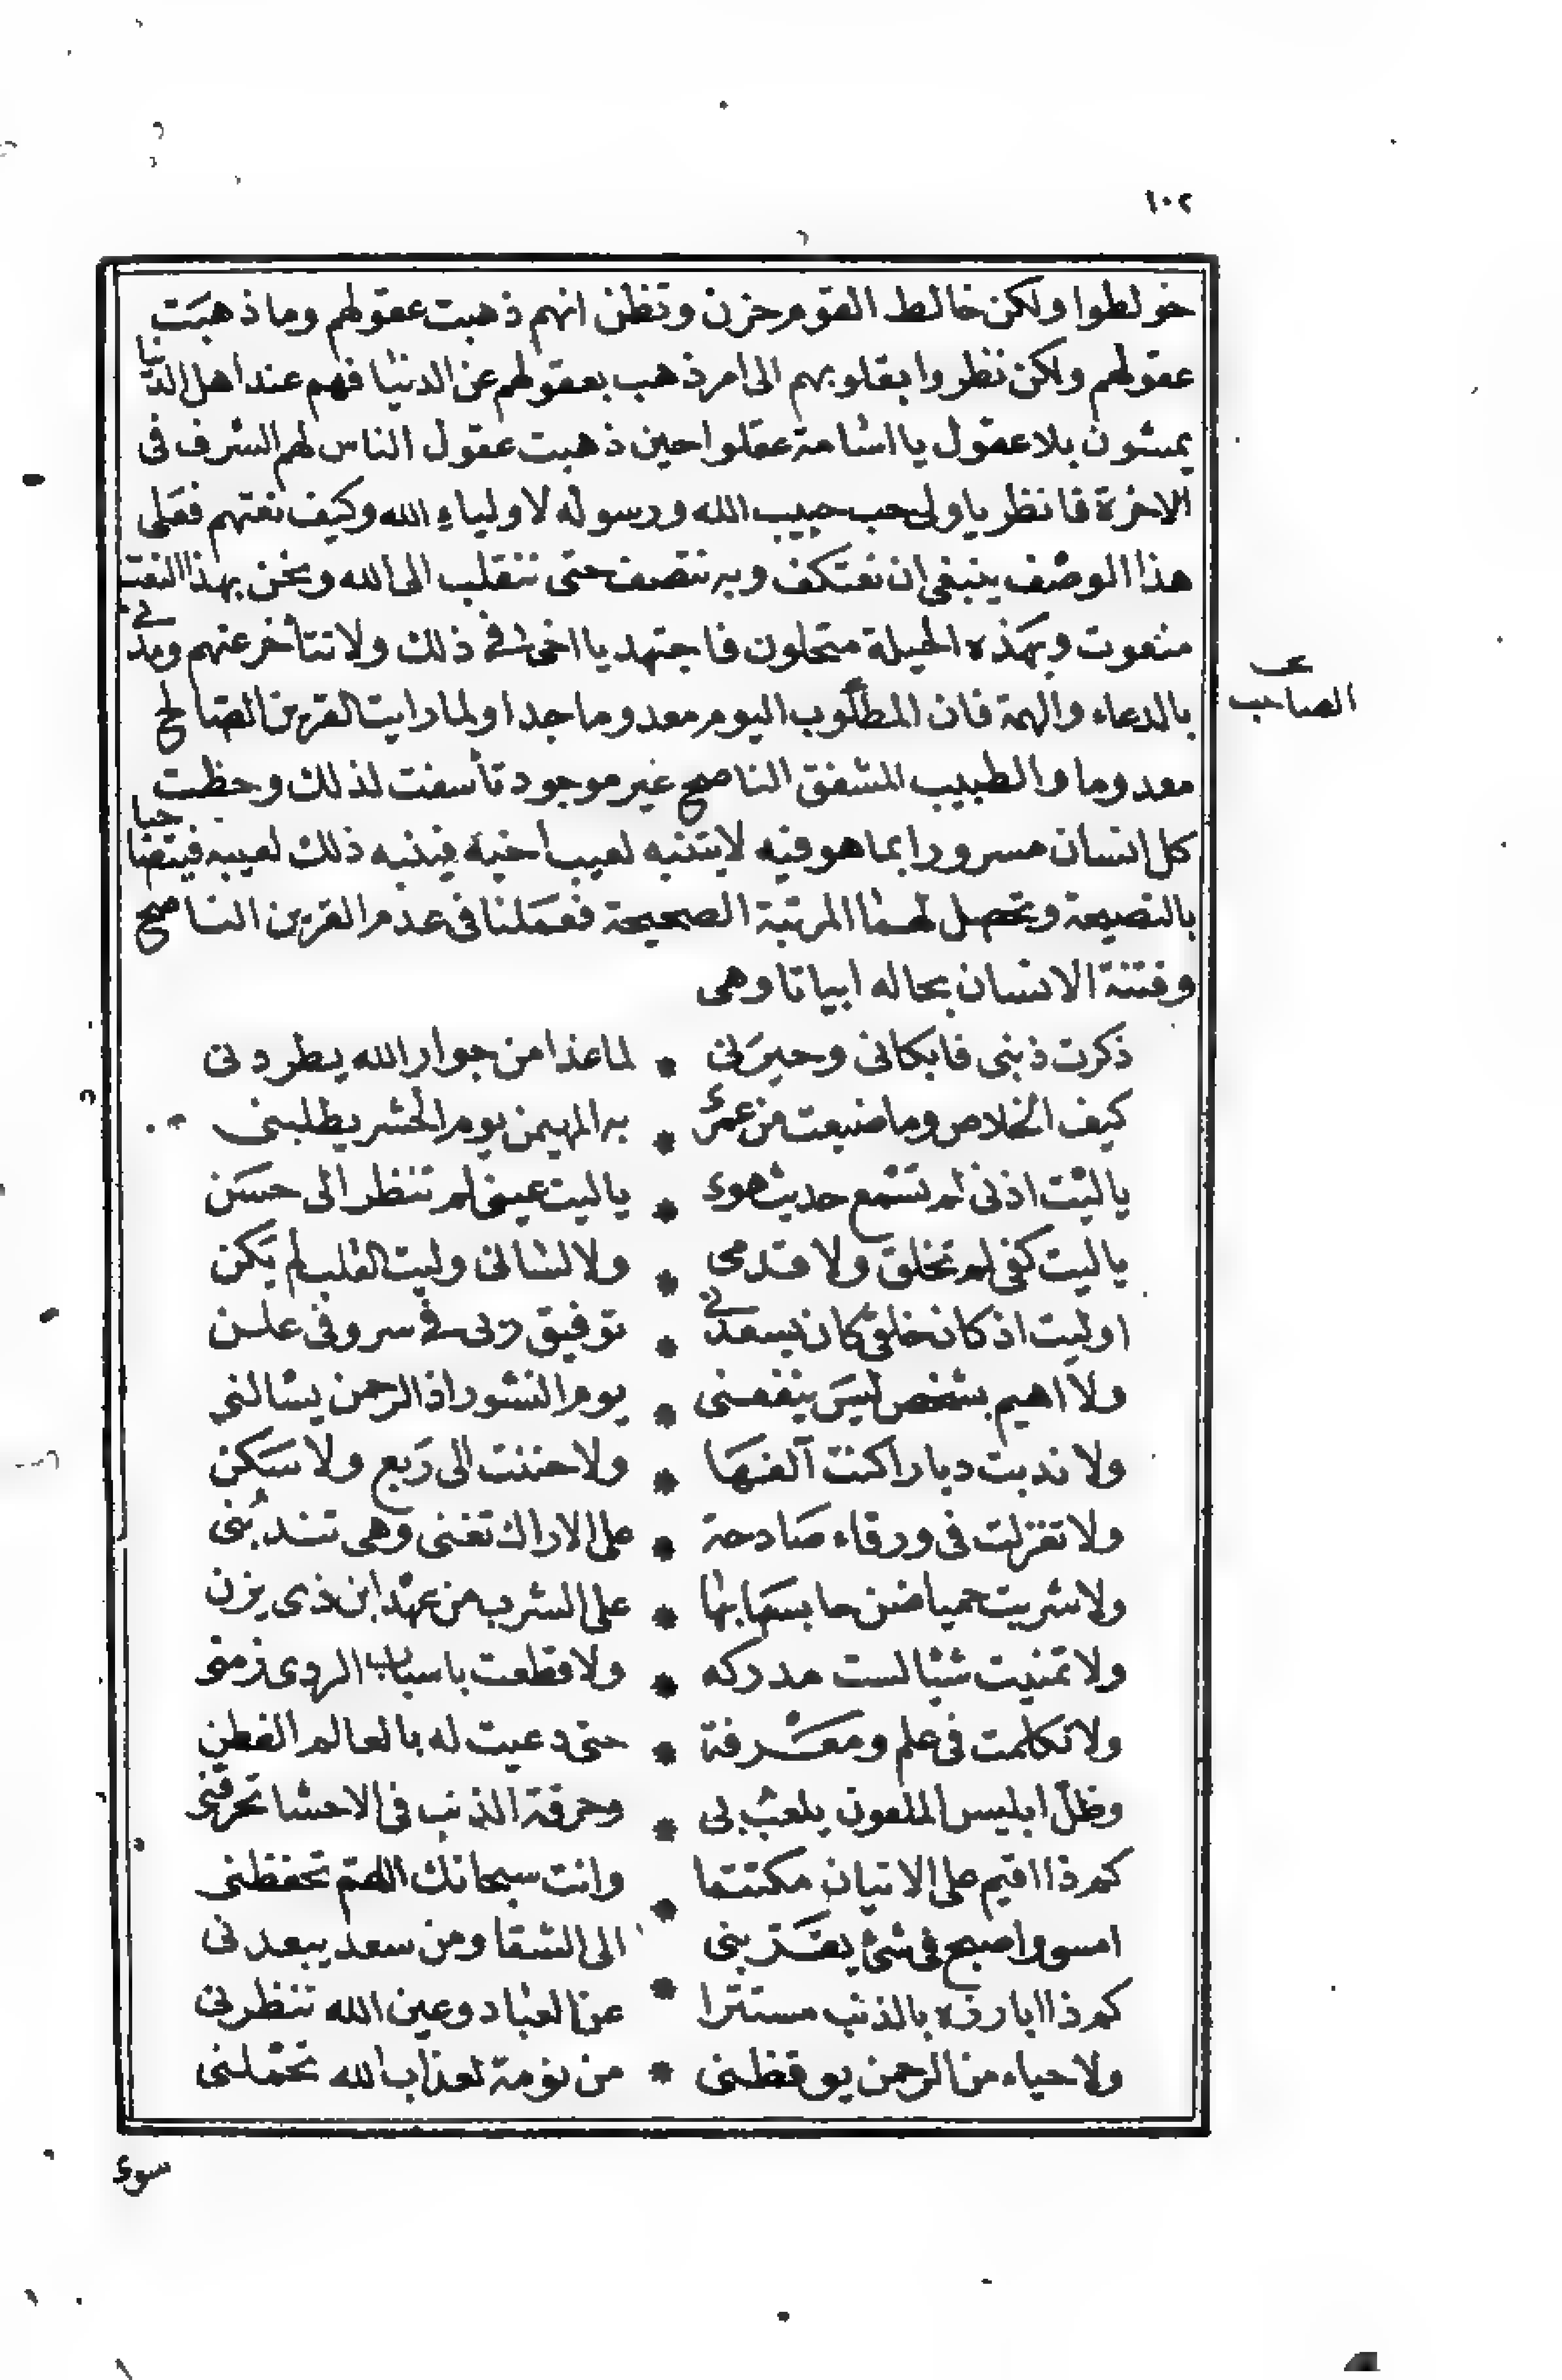 ١٠٢
خولطوا ولكن خالط القوم حزن وتظن انهم ذهبت عقولهم وما ذهبت
عقولهم ولكن نظروا بقلوبهم الى امر ذهب بعقولهم عن الدنيا فهم عند اهل الدنيا
يمشون بلا عقول يا اسامة عقلوا حين ذهبت عقول الناس لهم الشرف فى
الاخرة فانظر ياولى حب حبيب الله ورسوله لاولياء الله وكيف نعتهم فعلى
هذا الوصف ينبغى ان نعتكف وبه نتصف حتى ننقلب الى الله ونحن بهذا النعت
منعوت وبهذه الحيلة متحلون فاجتهد يا اخى فى ذلك ولا تتأخر عنهم ومدنى
بالدعاء والهمة فان المطلوب اليوم معدوما جدا ولما رايت القرين الصالح
عـ
الصاحب
معدوما والطبيب المشفق الناصح غير موجود تأسفت لذلك وحظت
كل انسان مسرورا بما هو فيه لا يتنبه لعيب أخيه فينبه ذلك لعيبه فيتضاحبا
بالنصيحة وتحصل لهما المرتبة الصحيحة فعملنا فى عدم القرين الناصح
وفتنة الانسان بحاله ابياتا وهى
ذكرت ذنبى فابكانى وحيرنى * لما غدا من جوار الله يطردنى
كيف الخلاص وما ضيعت من عمرى * به المهيمن يوم الحشر يطلبنى
ياليت اذنى لم تسمع حديث هوى * ياليت عينى لم تنظر الى حسن
ياليت كفى لم تخلق ولا قدمى * ولا لسانى وليت القلب لم يكن
اوليت اذ كان خلقى كان يسعدنى * توفيق ربى فى سر وفى علن
ولا اهيم بشخص ليس ينفعنى * يوم النشور اذ الرحمن يسالنى
ولا ندبت ديارا كنت آلفها * ولا حننت الى ربع ولا سكن
ولا تغزلت فى ورقاء صادحة * على الاراك تغنى وهى تندبنى
ولا شربت حميا ضن حابسها بها * على الشرب من عهد ابن ذى يزن
ولا تمنيت شيا لست مدركه * ولا قطعت باسباب الردى زمنى
ولا تكلمت فى علم ومعرفة * حتى دعيت له بالعالم الفطن
وظل ابليس الملعون يلعب بى * وحرقة الذنب فى الاحشا تحرقنى
كم ذا اقيم على الاتيان مكتتما * وانت سبحانك اللهم تحفظنى
امسى واصبح فى شئ يقربنى * الى الشقا ومن سعد يبعدنى
كم ذا ابارزه بالذنب مستترا * عن العباد وعين الله تنظرنى
ولا حياء من الرحمن يوقظنى * من نومة لعذاب الله تحملنى
سوى